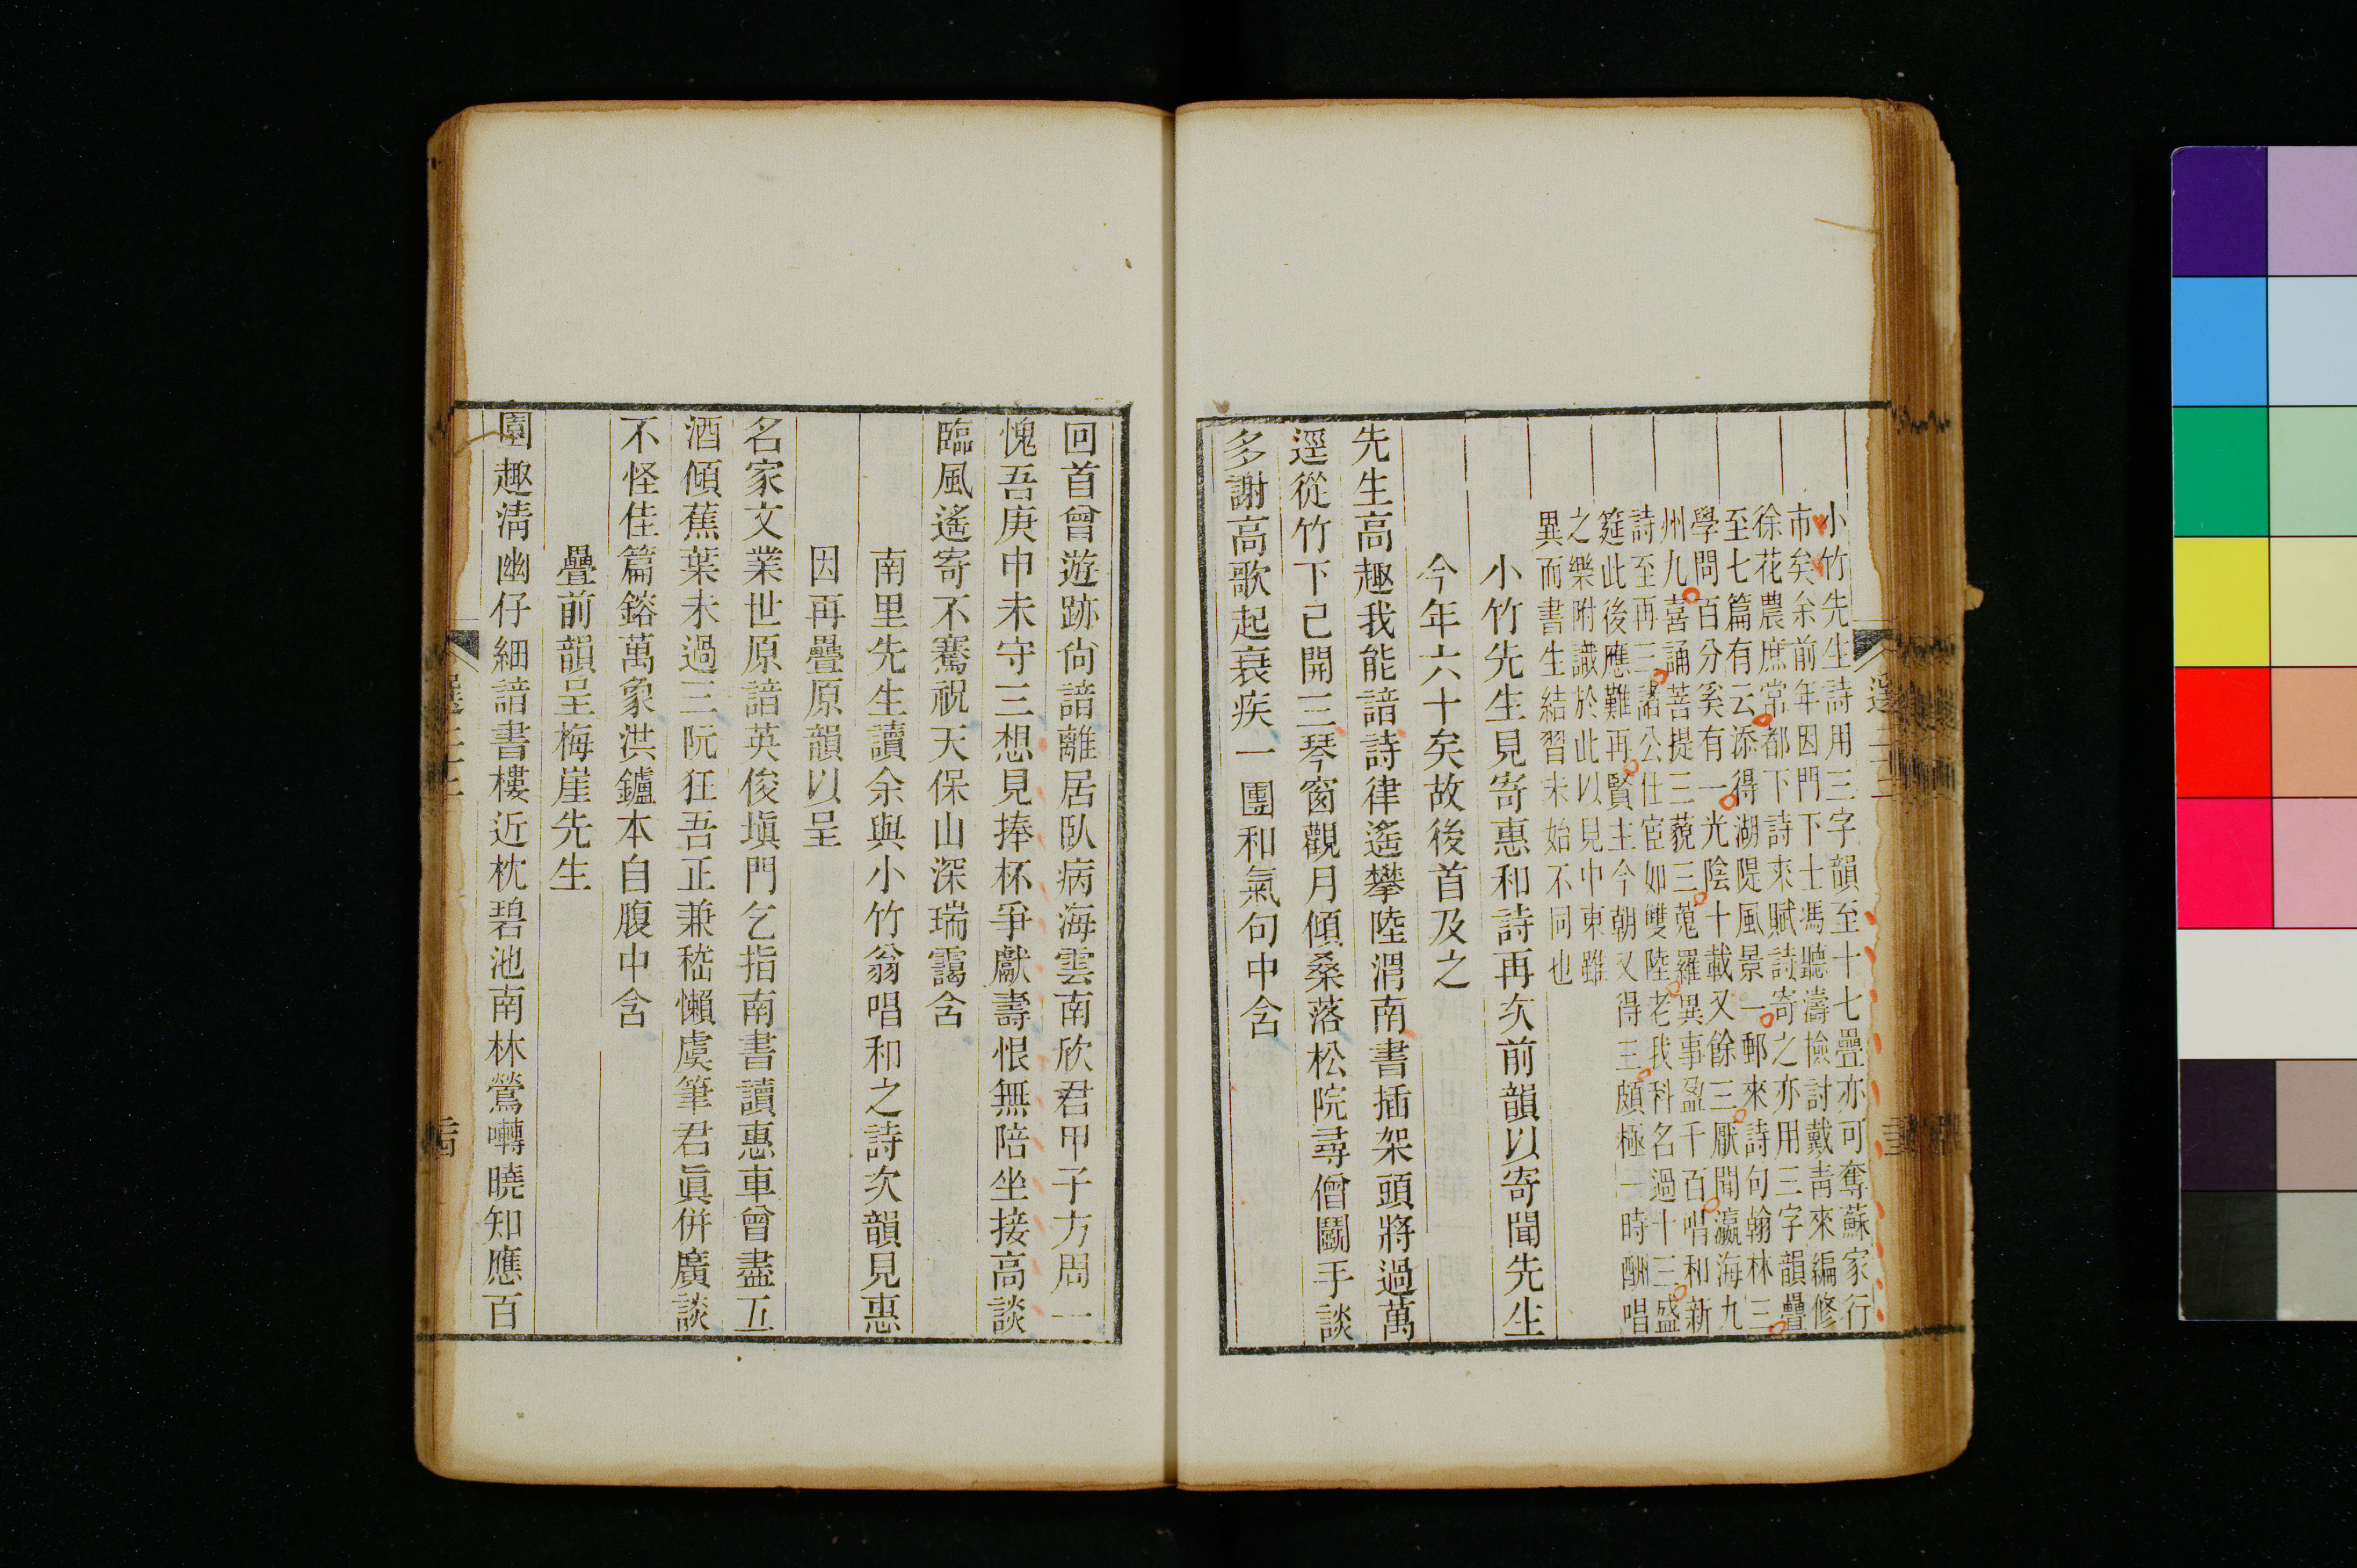 小竹先生詩用三字韻至十七疊亦可奪蘇家行
市矣余前年因門下士馮聽濤檢討戴靑來編修
徐花農庶常都下詩來賦詩寄之亦用三字韻疊
至七篇有云添得湖隄風景一郵來詩句翰林三
學問百分奚有一光陰十載又餘三厭聞瀛海九
州九喜誦菩提三藐三蒐羅異事盈千百唱和新
詩至再三諸公仕宦如雙陸老我科名過十三盛
筵此後應難再賢主今朝又得三頗極一時酬唱
之樂附識於此以見中東雖
異而書生結習未始不同也
小竹先生見寄惠和詩再次前韻以寄聞先生
今年六十矣故後首及之
先生高趣我能諳詩律遙攀陸渭南書插架頭將過萬
逕從竹下已開三琴窗觀月傾桑落松院尋僧鬭手談
多謝高歌起衰疾一團和氣句中含
回首曾遊跡尙諳離居臥病海雲南欣君甲子方周一
愧吾庚申未守三想見捧杯爭獻壽恨無陪坐接高談
臨風遙寄不騫祝天保山深瑞靄含
南里先生讀余與小竹翁唱和之詩次韻見惠
因再疊原韻以呈
名家文業世原諳英俊塡門乞指南書讀惠車曾盡五
酒傾蕉葉未過三阮狂吾正兼嵇懶虞筆君眞併廣談
不怪佳篇鎔萬象洪鑪本自腹中含
疊前韻呈梅崖先生
園趣淸幽仔細諳書樓近枕碧池南林鶯囀曉知應百